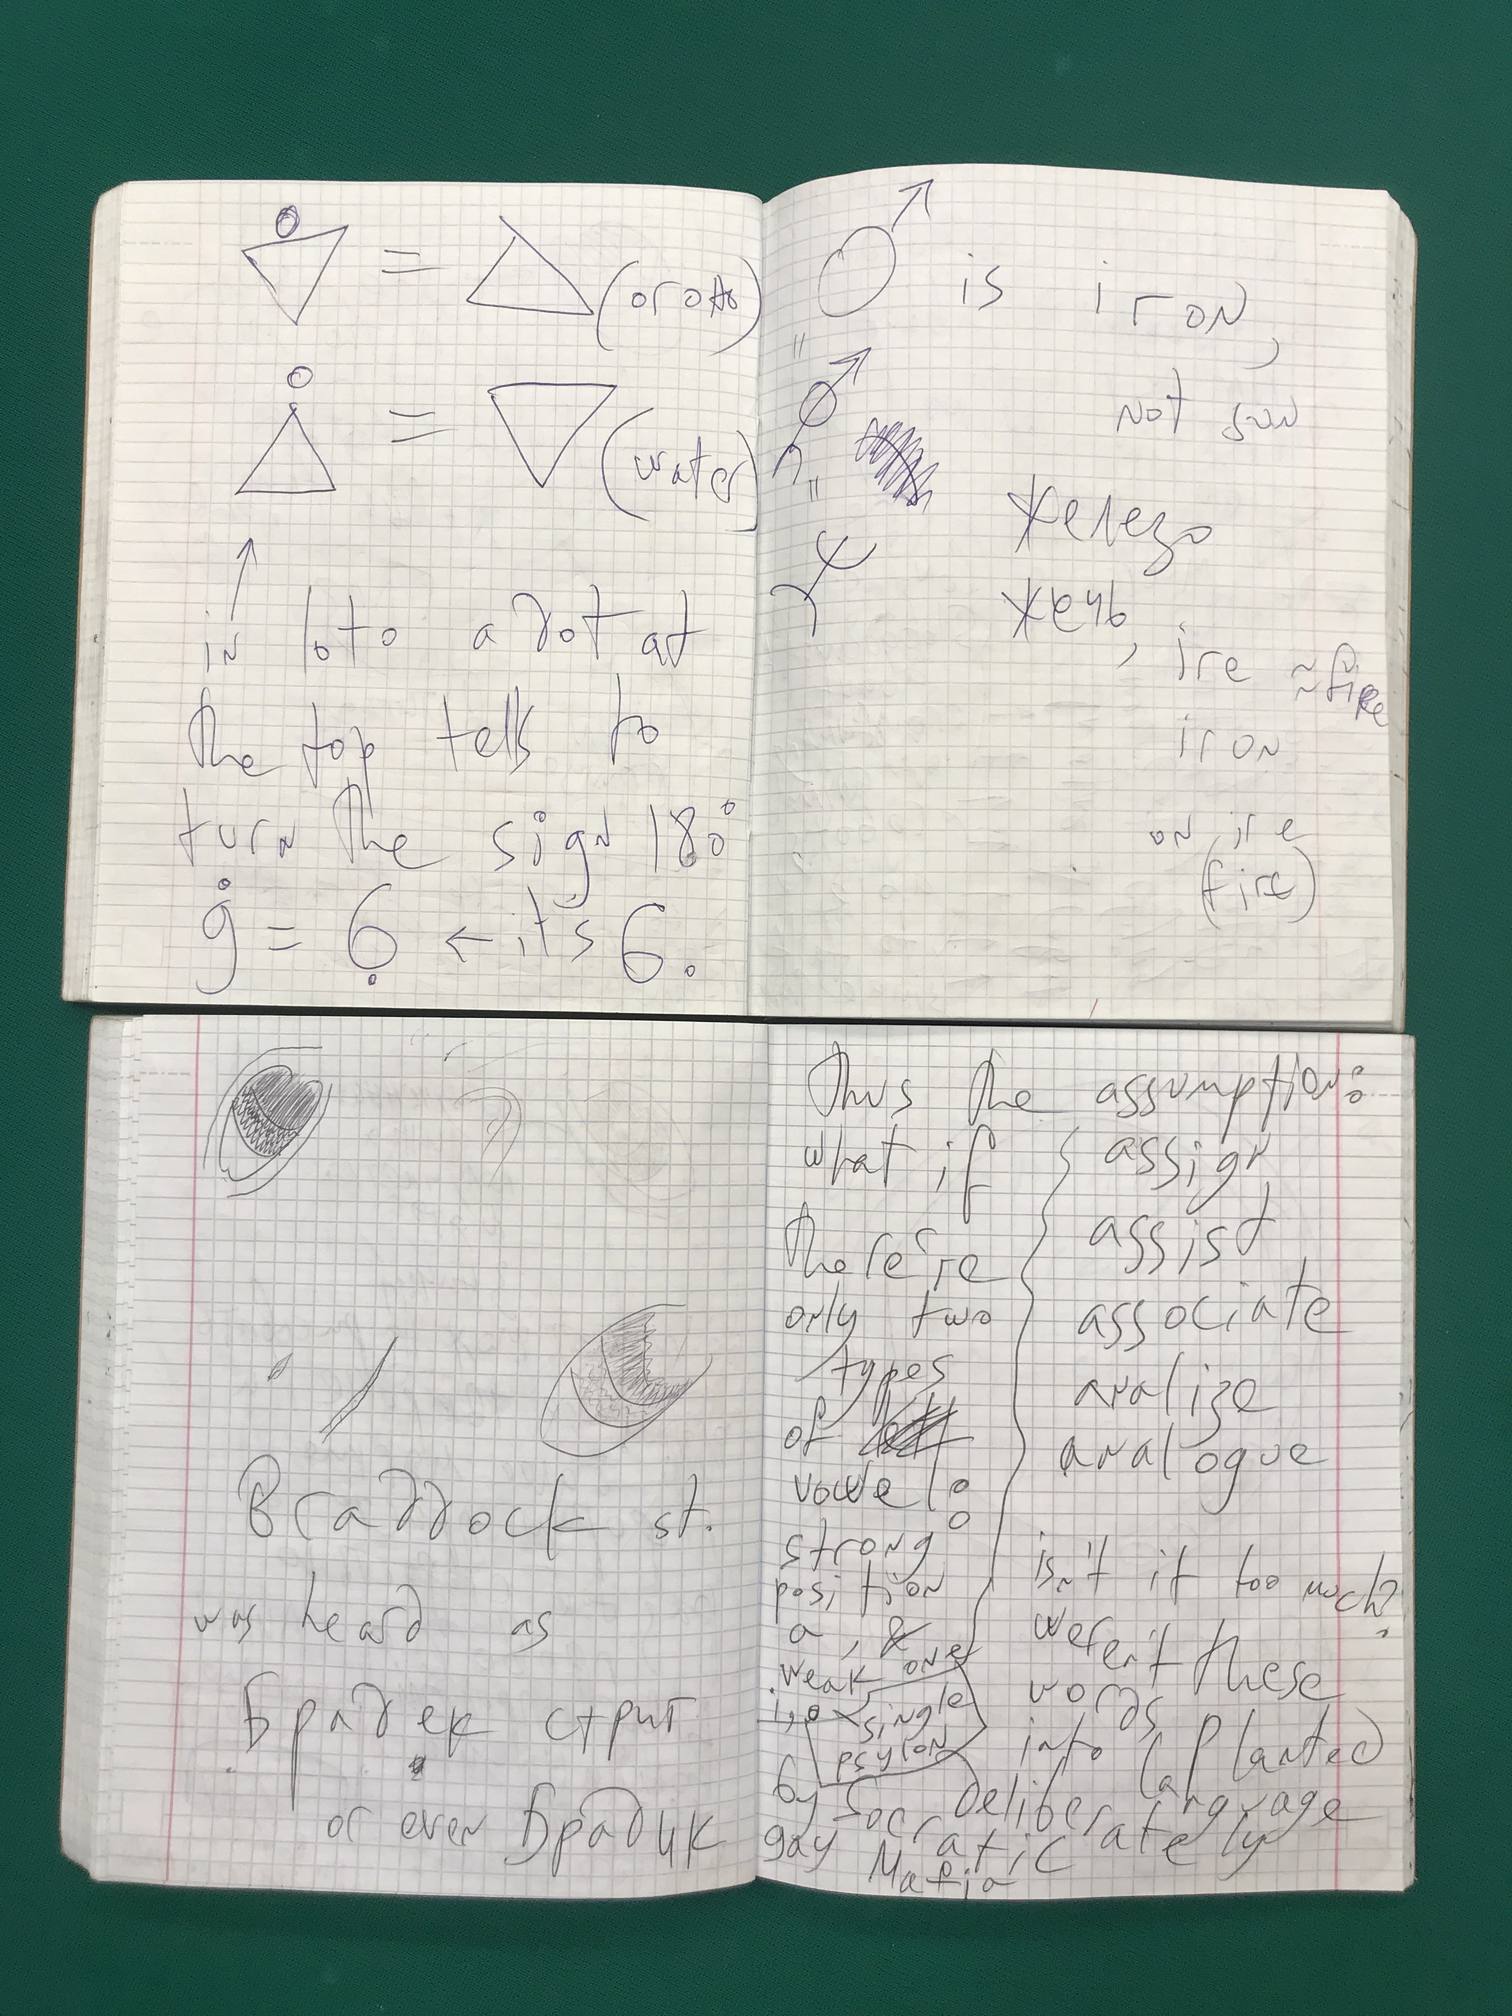 =
(огонь)
=
(water)
in loto a dot at
the top tells to
turn the sign 180°
9 = 6 ← it's 6.
is iron,
not sun
железо
жечь, ire ≈ fire
iron
on ire
(fire)
Braddock st.
was heard as
Брадек стрит
or even Брадик
Thus the assumption:
what if
there're
only two
types
of
vowel:
strong
position
a, &
weak one
i, o
single
psylon
assign
assist
associate
analize
analogue
isn't it too much?
weren't these
words planted
into language
deliberately
by Socratic
gay Mafia